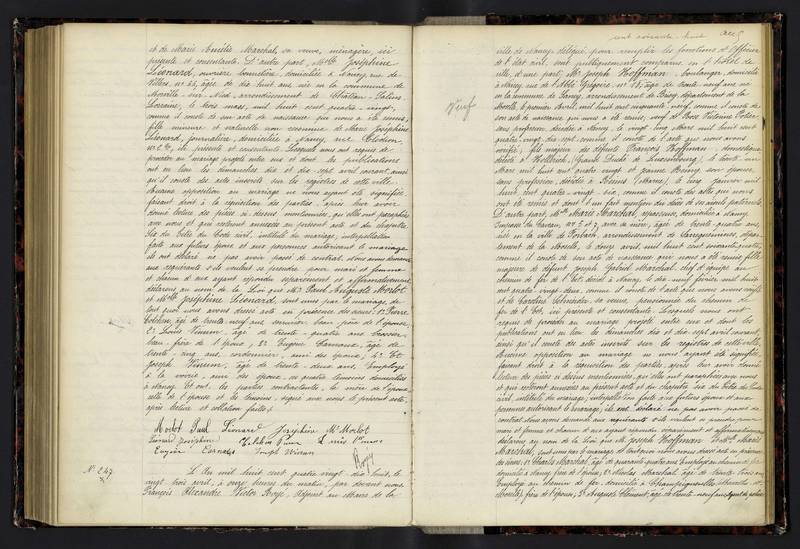 et de Marie Amélie Marchal, sa veuve, ménagère, ici
présente et consentante. D'autre part, Mlle Joséphine
Léonard, ouvrière, domiciliée à Nancy, rue de
Villers, no 44, âgée de dix huit ans, née en la commune de
Morville sur Nied, arrondissement de Château-Salins,
Lorraine, le trois mars, mil huit cent quatre-vingt,
comme il conste de son acte de naissance qui nous a été remis,
fille mineure et naturelle non reconnue de Marie Joséphine
Léonard, journalière, domiciliée à Nancy, rue Clodion
no 2, présente et consentante. Lesquels nous ont requis de
procéder au mariage projeté entre eux et dont les publications
ont eu lieu les dimanches dix et dix sept avril courant, ainsi
qu'il conste des actes inscrits sur les registres de cette ville.
Aucune opposition au mariage ne nous ayant été signifiée,
faisant droit à la réquisition des parties, après leur avoir
donné lecture des pièces ci dessus mentionnées, qui elles ont paraphées
avec nous et qui resteront annexées au présent acte et du chapitre
six du titre du Code civil, intitulé du mariage, interpellation
faite aux futurs époux et aux personnes autorisant le mariage
ils ont déclaré ne pas avoir passé de contrat. Nous avons demandé
aux requérants s'ils veulent se prendre pour mari et femme
et chacun d'eux ayant répondu séparément et affirmativement
déclarons au nom de la Loi que Mr Paul Auguste Morlot
et Mlle Joséphine Léonard, sont unis par le mariage, de
tout quoi nous avons dressé acte en présence des sieurs: 1° Pierre
âgé de trente-neuf ans, serrurier, beau père de l'épouse;
2° Louis Vinson, âgé de trente-quatre ans,
beau-frère de l'époux; 3° Eugène âgé de
trente-cinq ans, cordonnier, ami des époux; 4° Et
Joseph Vinson, âgé de trente-deux ans, employé
à la voirie, ami des époux, ces quatre témoins domiciliés
à Nancy. Et ont, les parties contractantes, la mère de l'époux,
celle de l'épouse et les témoins, signé avec nous le présent acte,
après lecture et collation faites.
Morlot Paul Léonard Joséphine Ve Morlot
Léonard Joséphine Pierre Louis Vinson
Eugène Joseph Vinson
No 247
L'An mil huit cent quatre vingt dix huit, le
vingt trois avril, à onze heures du matin, par devant nous
François Alexandre Victor adjoint au Maire de la
cent soixante-huit
ville de Nancy, délégué pour remplir les fonctions d'Officier
de l'état civil, sont publiquement comparus en l'hôtel de
ville, d'une part, Mr Joseph Hoffman, boulanger, domicilié
à Nancy, rue de l'Abbé Grégoire no 18, âgé de trente neuf ans, né
Veuf
Moselle, le premier Avril, mil huit cent cinquante neuf, comme il conste de
son acte de naissance qui nous a été remis, veuf de Rose Victorine
sans profession, décédée à Nancy, le vingt cinq Mars mil huit cent
quatre-vingt-dix sept, comme il conste de l'acte que nous avons
vérifié; fils majeur de défunts François Hoffman, domestique
décédé à Hollerich, (Grand Duché de Luxembourg), le trente un
Mars mil huit cent quatre vingt et Jeanne son épouse,
sans profession, décédée à Reims (Marne) le cinq Janvier mil
huit cent quatre-vingt-six, comme il conste des actes qui nous
ont été remis
D'autre part, Mlle Marie Marchal, repasseuse, domiciliée à Nancy,
avec sa mère, âgée de trente quatre ans,
née en la ville de Forbach, arrondissement de Sarreguemines, département
de la Moselle, le douze avril, mil huit cent soixante quatre,
comme il conste de son acte de naissance qui nous a été remis, fille
majeure de défunt Joseph Gabriel Marchal, chef d'équipe au
chemin de fer de l'Est, décédé à Nancy, le dix neuf février mil huit
cent quatre-vingt-deux, comme il conste de l'acte que nous avons vérifié
et de Caroline Schneider, sa veuve, pensionnée du chemin de
fer de l'Est, ici présente et consentante. Lesquels nous ont
requis de procéder au mariage projeté entre eux et dont les
publications ont eu lieu les dimanches dix et dix sept avril courant,
ainsi qu'il conste des actes inscrits sur les registres de cette ville.
Aucune opposition au mariage ne nous ayant été signifiée,
faisant droit à la réquisition des parties, après leur avoir donné
lecture des pièces ci dessus mentionnées, qui elles ont paraphées avec nous
et qui resteront annexées au présent acte et du chapitre six du titre du Code
civil, intitulé du mariage, interpellation faite aux futurs époux et aux
personnes autorisant le mariage, ils ont déclaré ne pas avoir passé de
contrat. Nous avons demandé aux requérants s'ils veulent se prendre pour
mari et femme et chacun d'eux ayant répondu séparément et affirmativement
déclarons au nom de la Loi que Mr Joseph Hoffman et Mlle Marie
Marchal, sont unis par le mariage, de tout quoi nous avons dressé acte en présence
des sieurs: 1° Charles Marchal, âgé de quarante quatre ans, Employé au chemin de fer
domicilié à Nancy, frère de l'épouse; 2° Nicolas Marchal, âgé de trente trois ans
Employé au chemin de fer, domicilié à Champigneulles (Meurthe et
Moselle), frère de l'épouse; 3° Auguste Clément, âgé de trente-neuf ans, agent de police